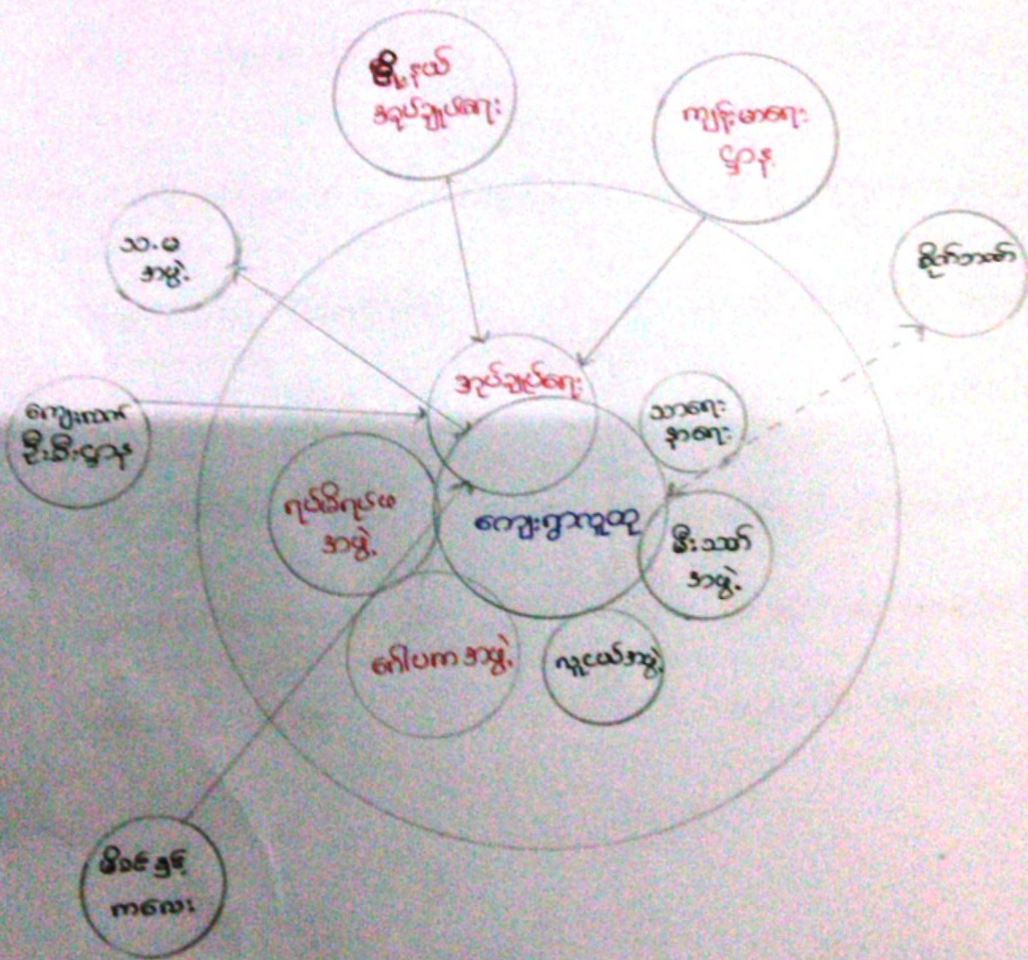 မြို့နယ်
အုပ်ချုပ်ရေး
ကျန်းမာရေး
ဌာန
သ.မ
အဖွဲ့
စိုက်ဘဏ်
အုပ်ချုပ်ရေး
သာရေး
နာရေး
ကျေးလက်
ဦးစီးဌာန
ရပ်မိရပ်ဖ
အဖွဲ့
ကျေးရွာလူထု
မီးသတ်
အဖွဲ့
ဂေါပကအဖွဲ့
လူငယ်အဖွဲ့
မိခင်နှင့်
ကလေး